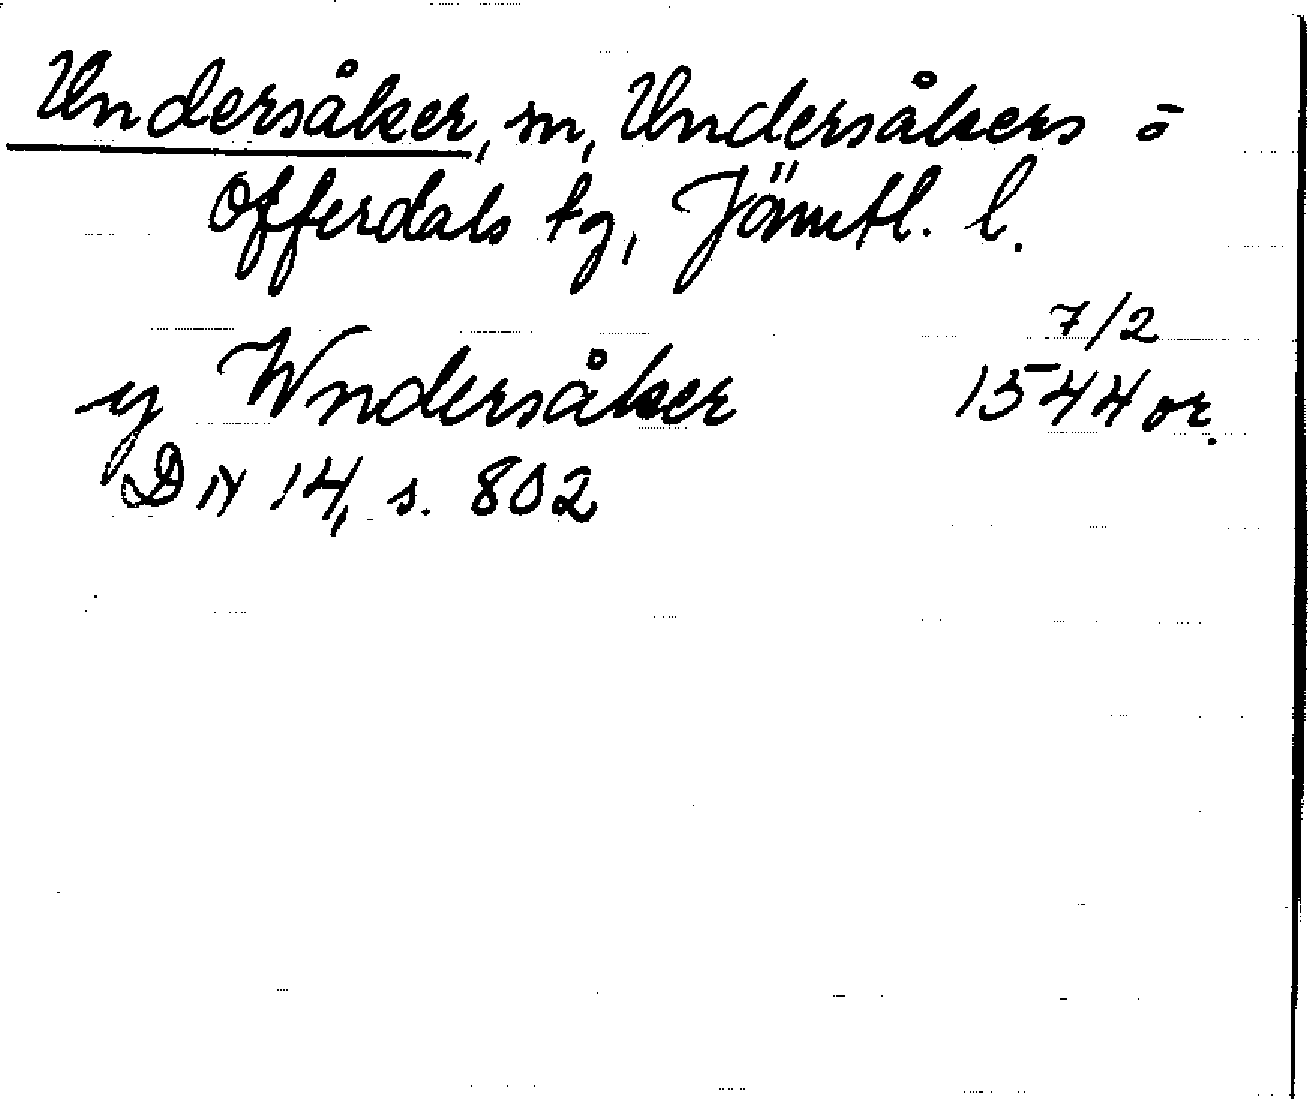 Undersåker, sn, Undersåkers o
Offerdals tg, Jämtl. l.
7/2
y Wndersåker 1544 or.
DN 14, s. 802